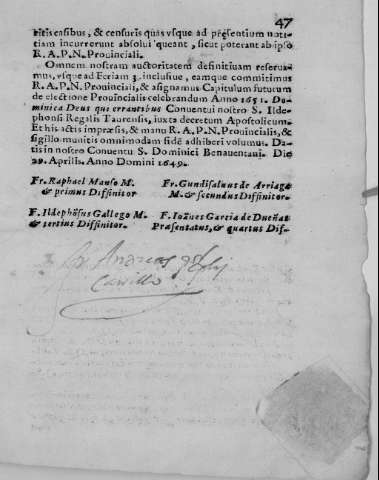 47
ritis casibus, & censuris quas vsque ad præsentium noti-
tiam incurrerunt absolui queant, sicut poterant ab ipso
R. A. P. N. Prouinciali.
Omnem nostram auctoritatem definitiuam reserua-
mus, vsque ad Feriam 3. inclusiue, eamque committimus
R. A. P. N. Prouinciali, & assignamus Capitulum futurum
de electione Prouincialis celebrandum Anno 1651. Do-
minica Deus qui errantibus Conuentui nostro S. Ilde-
phonsi Regalis Taurensis, iuxta decretum Apostolicum.
Et his actis impræsis, & manu R. A. P. N. Prouincialis, &
sigillo munitis omnimodam fidẽ adhiberi volumus. Da-
tis in nostro Conuentu S. Dominici Benauentani. Die
29. Aprilis. Anno Domini 1649.
Fr. Raphael Manso M.
& primus Diffinitor
Fr. Gundisaluus de Arriaga
M. & secundus Diffinitor.
F. Ildephõsus Gallego M.
& tertius Diffinitor.
F. Ioãnes Garcia de Dueñas
Præsentatus, & quartus Dif-
Fr Andreas
Carrillo